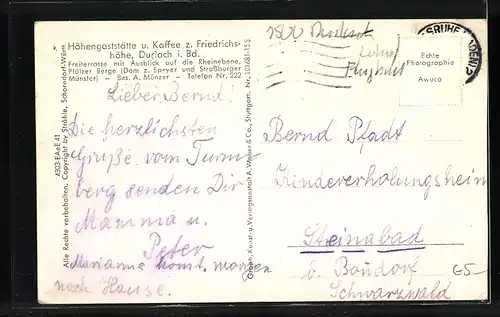 Höhengaststätte u. Kaffee z. Friedrichs-
höhe, Durlach i. Bd.
Freiterrasse mit Ausblick auf die Rheinebene,
Pfälzer Berge (Dom z. Speyer und Straßburger
Münster) — Bes. A. Münzer — Telefon Nr. 222
Lieber Bernd!
Die herzlichsten
Grüße vom Turm-
berg senden Dir
Mamma u.
Peter
Marianne komt morgen
nach Hause.
4303-EA&E 41
Alle Rechte vorbehalten. Copyright by Strähle, Schorndorf-Württ.
Kunst- u. Verlagsanstalt A. Weber & Co., Stuttgart. Nr.
Echte
Photographie
Awuco
Bernd Pfadt
Kindererholungsheim
Steinabad
b. Bondorf
Schwarzwald
G5-